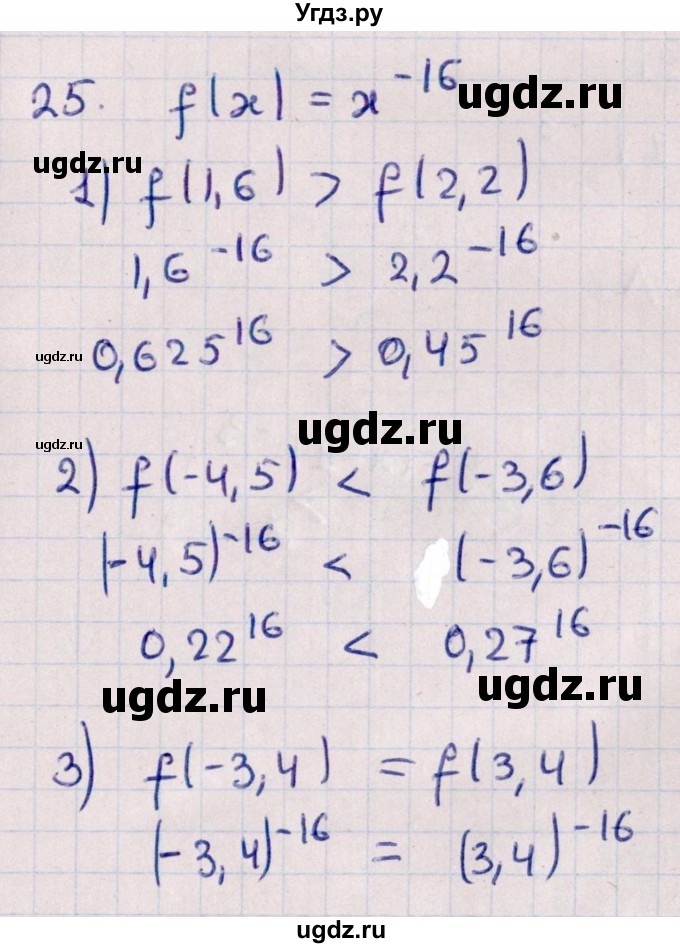 Угдз.ру
25. f(x) = x^-16
ugdz.ru
ugdz.ru
1) f(1,6) > f(2,2)
1,6^-16 > 2,2^-16
ugdz.ru
0,625^16 > 0,45^16
ugdz.ru
ugdz.ru
2) f(-4,5) < f(-3,6)
(-4,5)^-16 < (-3,6)^-16
0,22^16 < 0,27^16
ugdz.ru
ugdz.ru
3) f(-3,4) = f(3,4)
(-3,4)^-16 = (3,4)^-16
ugdz.ru